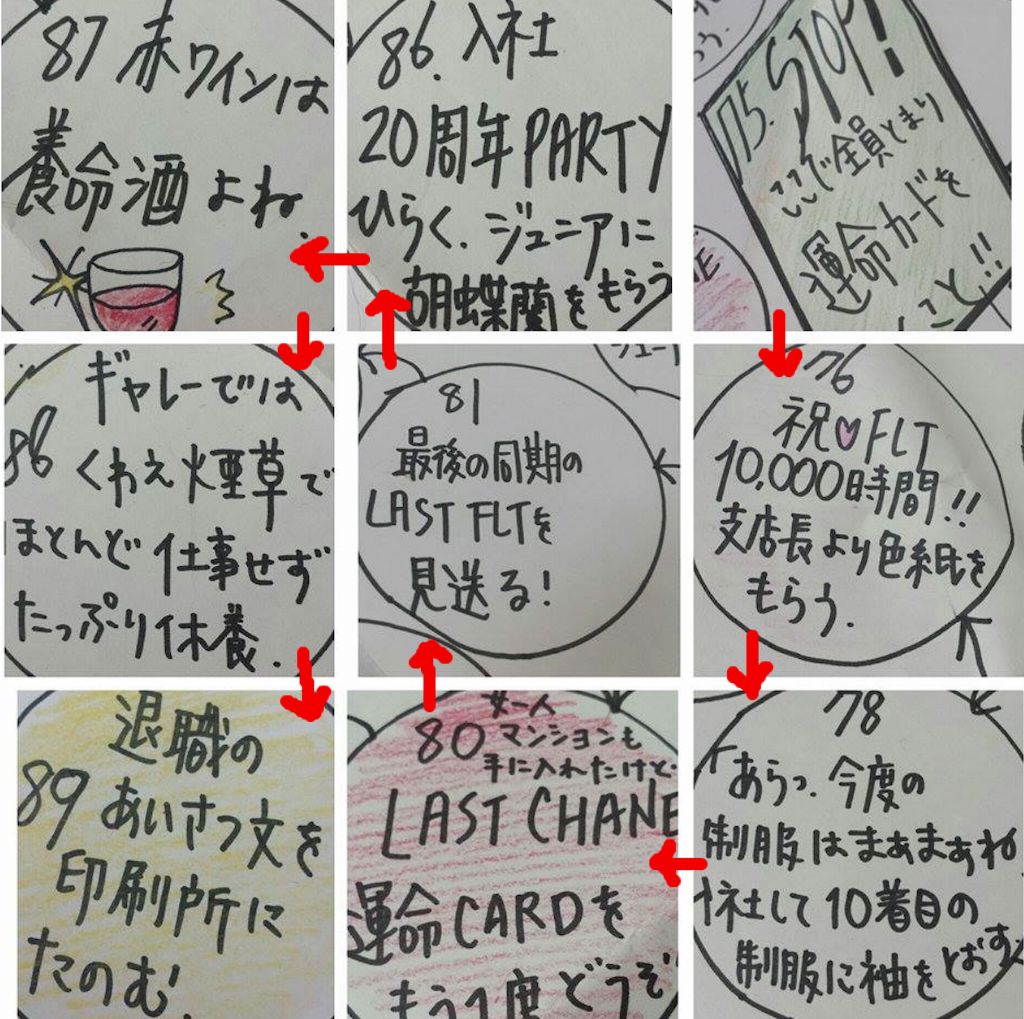 87 赤ワインは
養命酒よね.
86.入社
20周年PARTY
ひらく.ジュニアに
胡蝶蘭をもらう
75.STOP!
ここで全員とまり
運命カードを
こと!!
ギャレーでは
86 くわえ煙草で
ほとんど仕事せず
たっぷり休養.
81
最後の同期の
LAST FLTを
見送る!
76
祝♡FLT
10,000時間!!
支店長より色紙を
もらう.
退職の
89 あいさつ文を
印刷所に
たのむ!
女一人
80 マンションも
手に入れたけど.
LAST CHANE
運命CARDを
もう1度どうぞ
78
「あらっ.今度の
制服はまぁまぁね
入社して10着目の
制服に袖をとおす